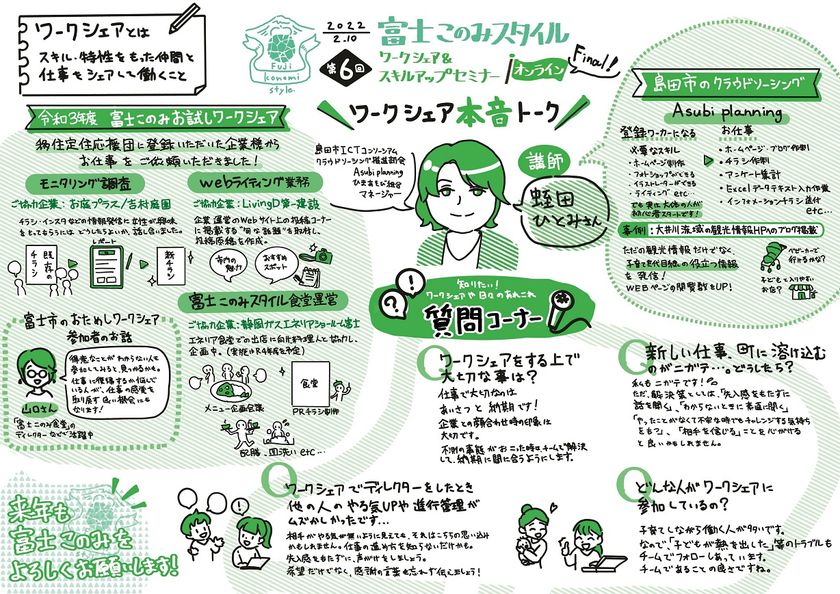 ワークシェアとは
スキル・特性をもった仲間と
仕事をシェアして働くこと
FUJI
konomi
style.
2022
2.10
第6回
富士このみスタイル
ワークシェア&
スキルアップセミナー
オンライン
Final!
ワークシェア本音トーク
令和3年度 富士このみお試しワークシェア
移住定住応援団に登録いただいた企業様から
お仕事をご依頼いただきました!
モニタリング調査
ご協力企業:お庭プラス/吉村庭園
チラシ・インスタなどの情報発信に女性が興味
をもってもらうには、どうしたらよいか、話し合いました。
既存の
チラシ
レポート
新チラシ
webライティング業務
ご協力企業:LivingD第一建設
企業運営のWebサイト上の投稿コーナー
に掲載する"旬な話題"を取材し、
投稿原稿を作成。
市内の
魅力
おすすめ
スポット
富士このみスタイル食堂運営
ご協力企業:静岡ガスエネリアショールーム富士
エネリア食堂での出店に向け料理人と協力し、
企画中。(実施はR4年度を予定)
メニュー企画会議
食堂
PRチラシ制作
配膳、皿洗い etc…
富士市のおためしワークシェア
参加者のお話
得意なことがわからない人も
参加してみると、見つかるかも。
仕事に復帰するか悩んで
いる人が、仕事の感覚を
取り戻す良い機会に
なります!
山口さん
「富士このみ食堂」の
ディレクターなどで活躍中
島田市ICTコンソーシアム
クラウドソーシング推進部会
Asubi planning
マネージャー
講師
蛭田
ひとみさん
島田市のクラウドソーシング
Asubi planning
登録ワーカーになる
必要なスキル
・ホームページ制作
・フォトショップができる
・イラストレーターができる
・ライティング etc…
でも実は大体の人が
初心者スタートです!
お仕事
・ホームページ・ブログ作成
・チラシ作制
・アンケート集計
・Excelデータテキスト入力作業
・インフォメーションチラシ送付
etc…
事例:大井川流域の観光情報HPへのブログ掲載
ただの観光情報だけでなく、
子育て世代目線の役立つ情報
を発信!
WEBページの閲覧数をUP!
ベビーカーで
行けるかな?
子どもと入りやすい
お店?
知りたい!
ワークシェアや日々のあれこれ
質問コーナー
Q ワークシェアをする上で
大切な事は?
仕事で大切なのは
あいさつと納期です!
企業との顔合わせ時の印象は
大切です。
不測の事態がおこった時はチームで解決
して、納期に間に合うようにします。
Q 新しい仕事、町に溶け込む
のがニガテ…。どうしたら?
私もニガテです!
ただ、解決策としては、「先入観をもたずに
話を聞く」、「わからないときに素直に聞く」
「やったことがなくて不安な時でもチャレンジする気持ち
をもつ」、「相手を信じる」ことを心がける
と良いかもしれません。
Q ワークシェアでディレクターをしたとき
他の人のやる気UPや進行管理が
ムズかしかったです…
相手がやる気が無いように見えても、それはこちらの思い込み
かもしれません。仕事の進め方を知らないだけかも。
先入観をもたずに、声がけをしましょう。
希望だけでなく、感謝の言葉も忘れず伝えましょう!
Q どんな人がワークシェアに
参加しているの?
子育てしながら働く人が多いです。
なので、「子どもが熱を出した」等のトラブルも
チームでフォローしあっています。
チームであることの良さですね。
来年も
富士このみを
よろしくお願いします!